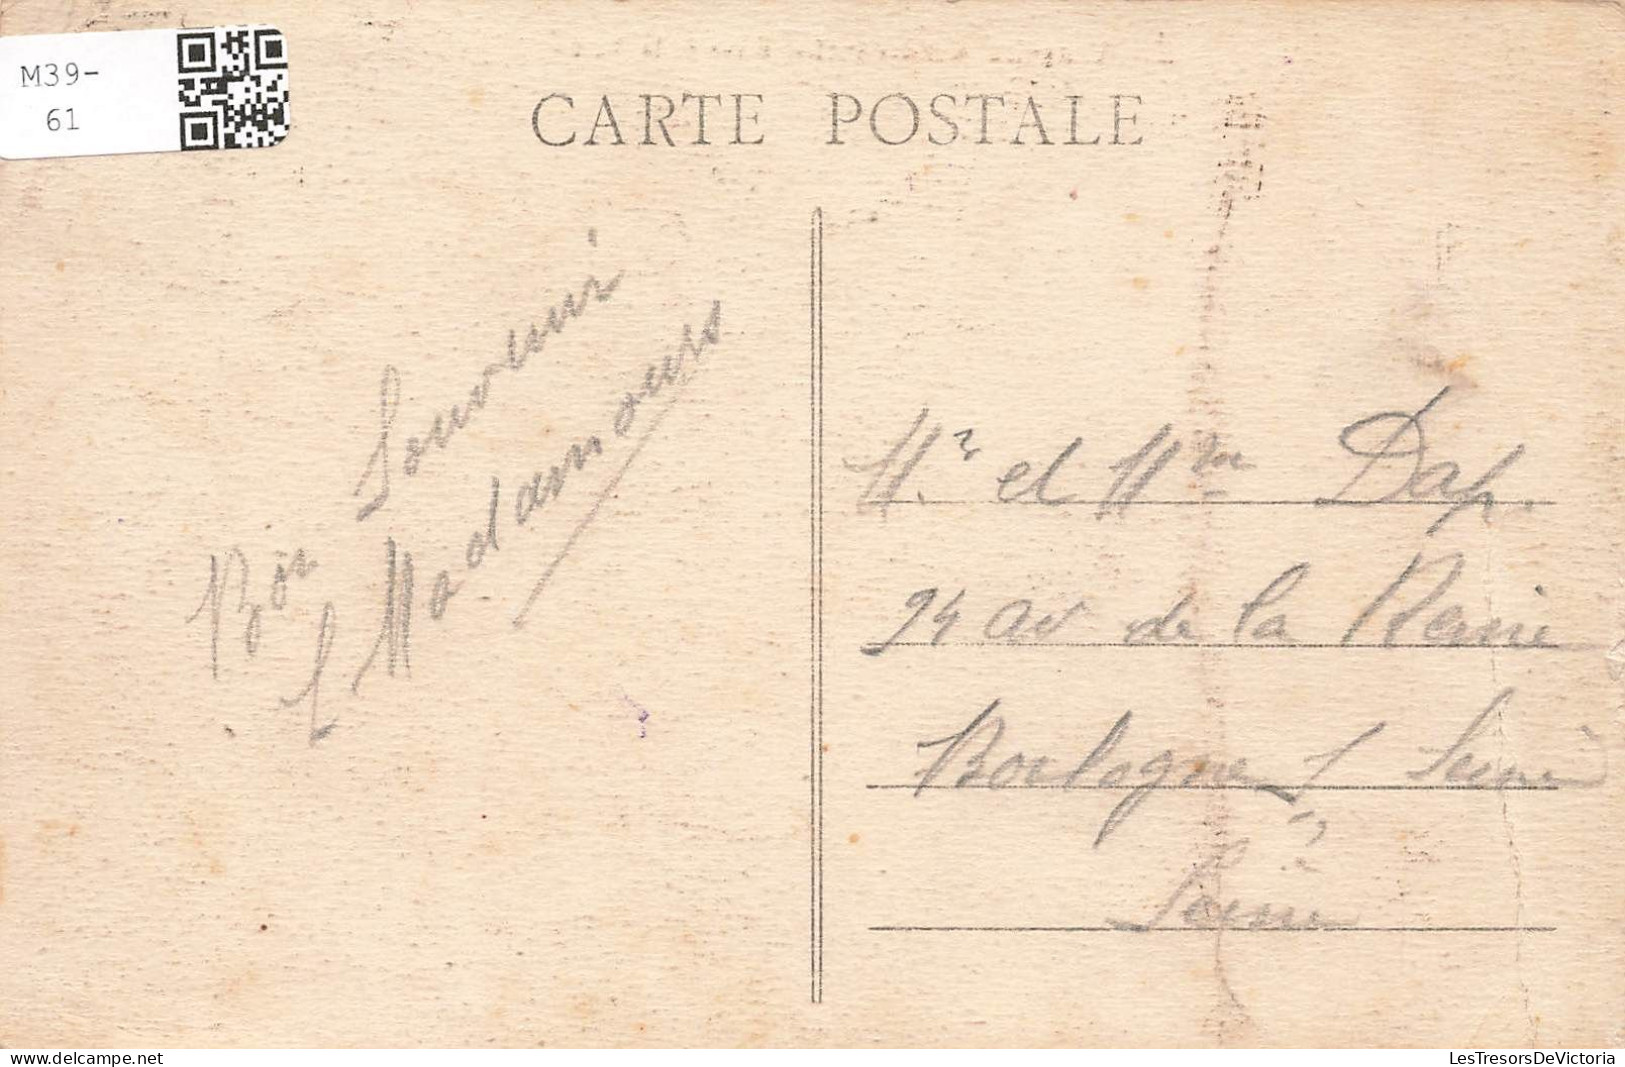 M39-
61
CARTE POSTALE
Bon Souvenir
L Madamours
Mr et Mme Dap.
94 av de la Reine
Boulogne S Seine
Seine
Delcampe.com
LesTresorsDeVictoria